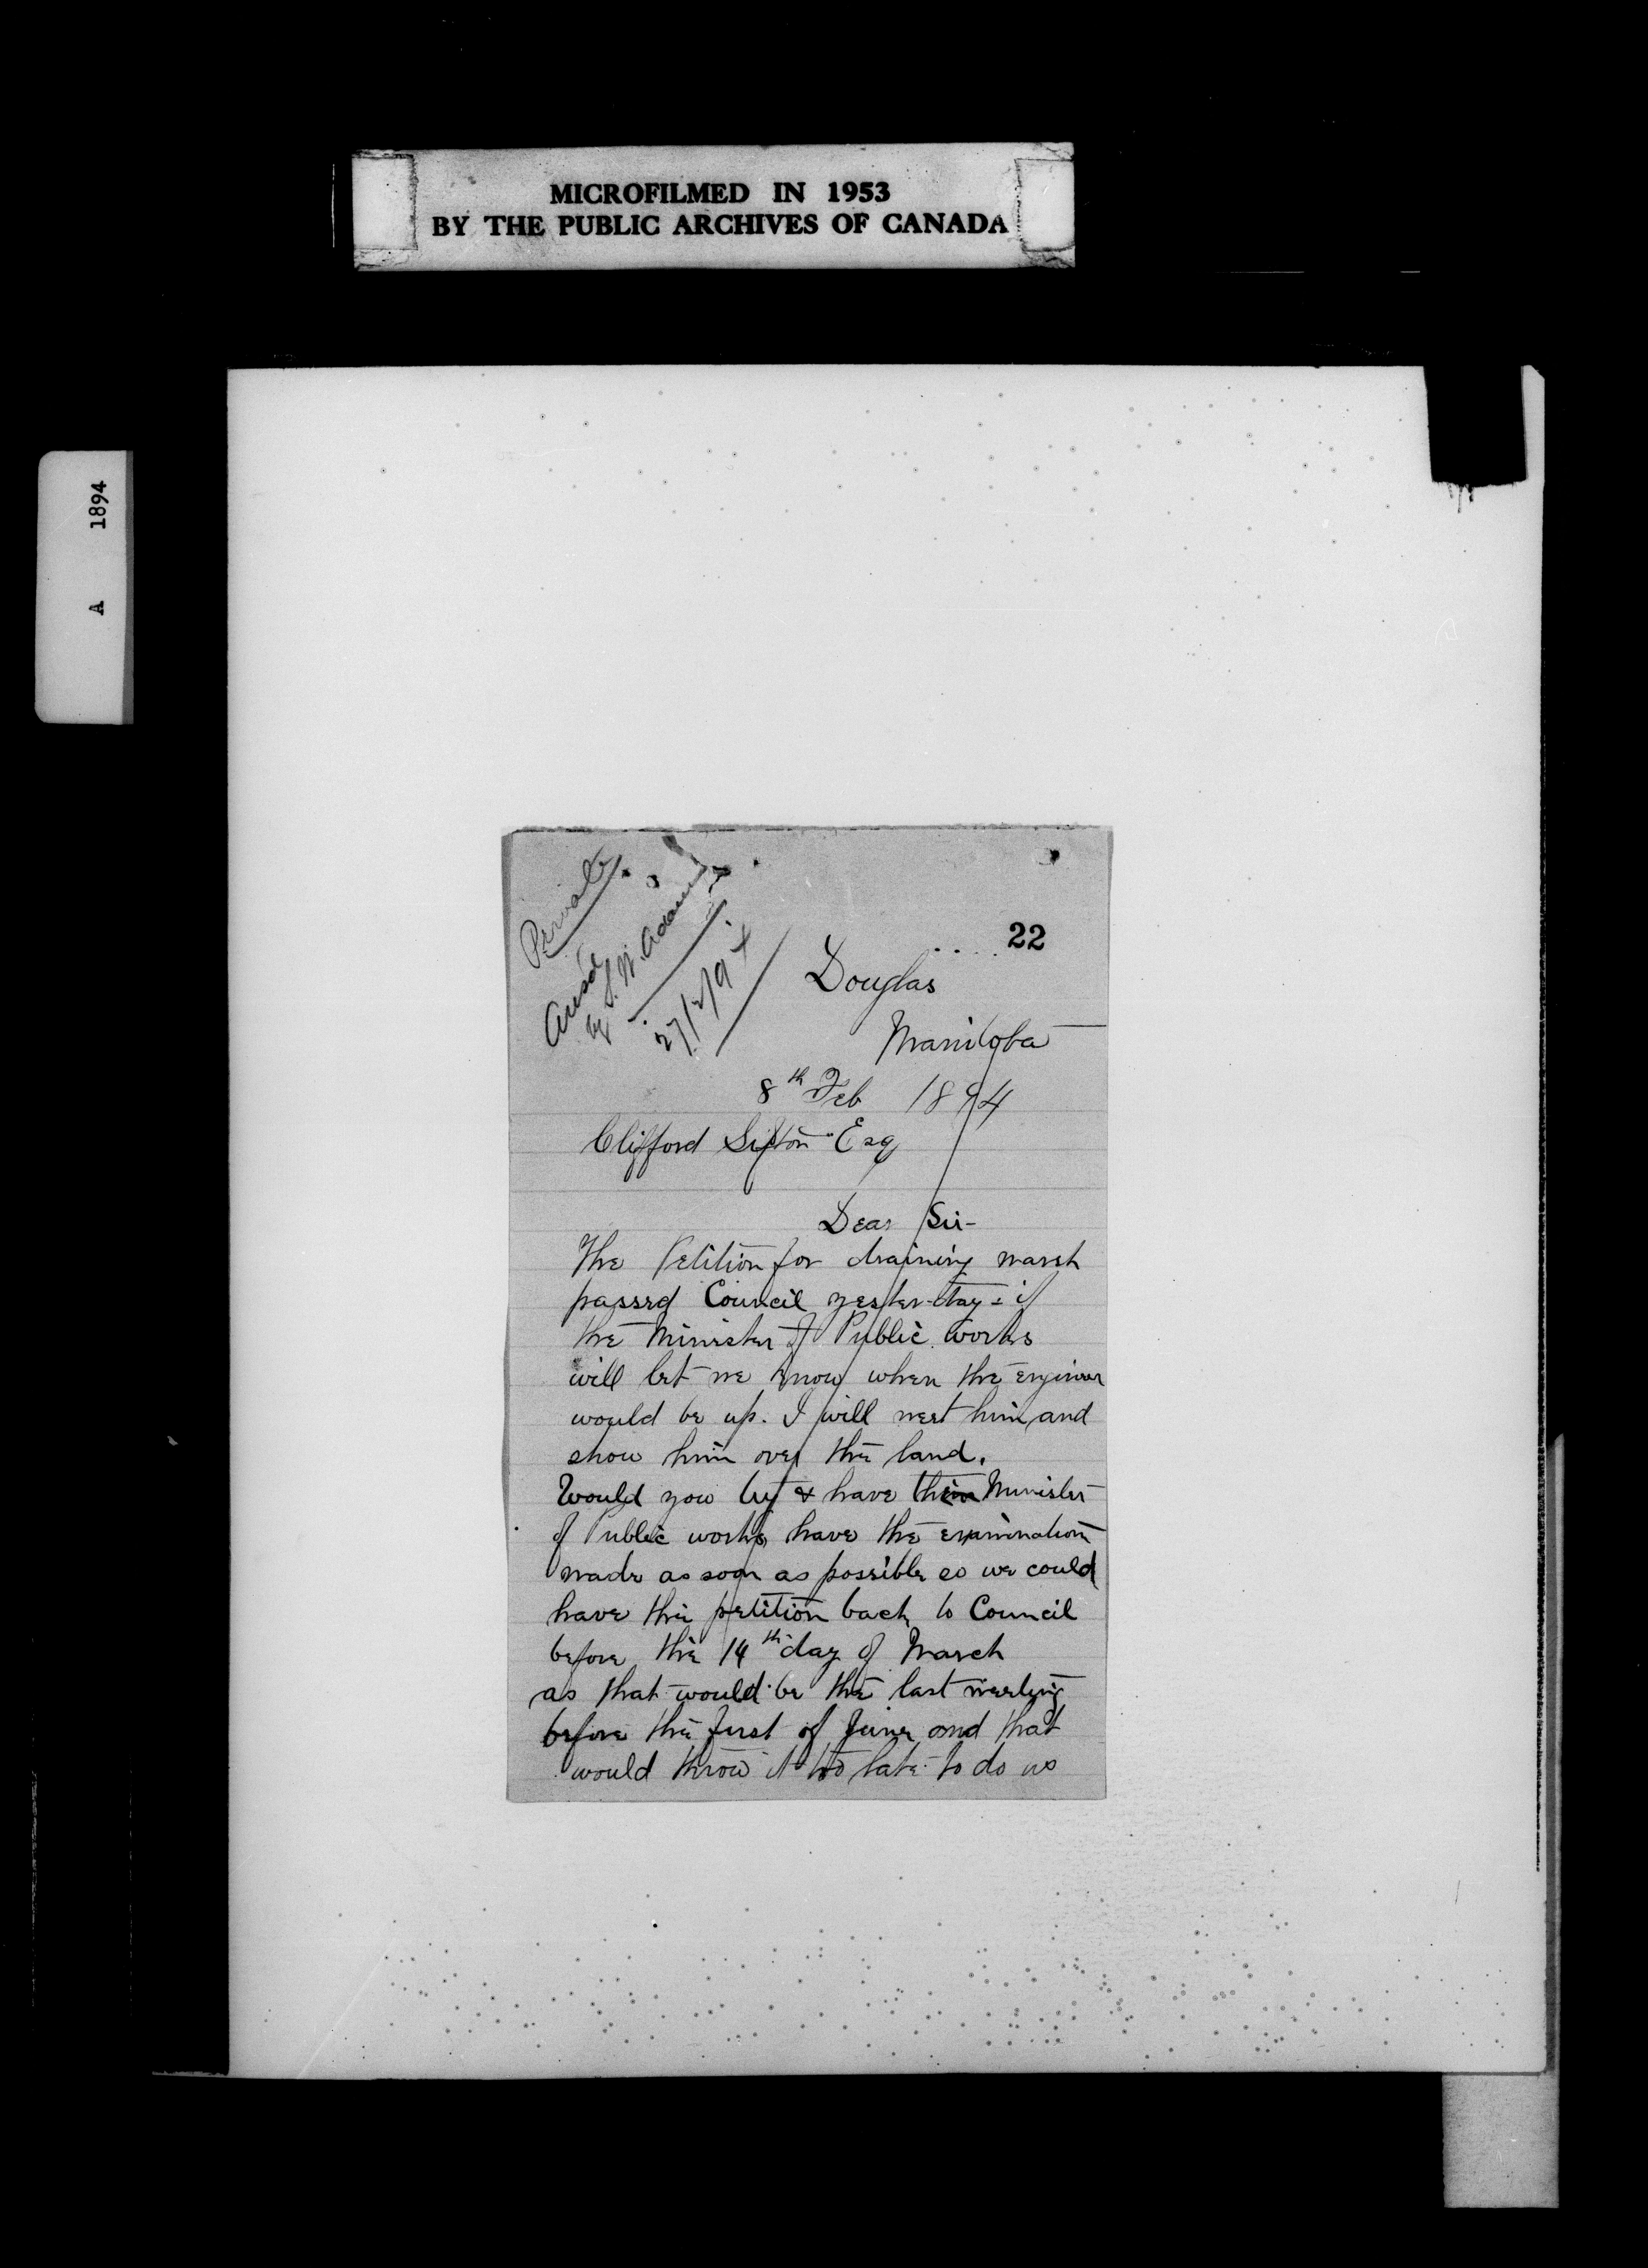 MICROFILMED IN 1953
BY THE PUBLIC ARCHIVES OF CANADA
A 1894
Private
Ansd
by S. W. Adams
27/2/94
22
Douglas
Manitoba
8th Feb 1894
Clifford Sifton Esq
Dear Sir-
The Petition for draining marsh
passed Council yester-day - if
the Minister of Public works
will let me know when the engineer
would be up. I will meet him and
show him over the land.
Would you try & have their Minister
of Public works have the examination
made as soon as possible so we could
have the petition back to Council
before the 14th day of March
as that would be the last meeting
before the first of June and that
would throw it too late to do us